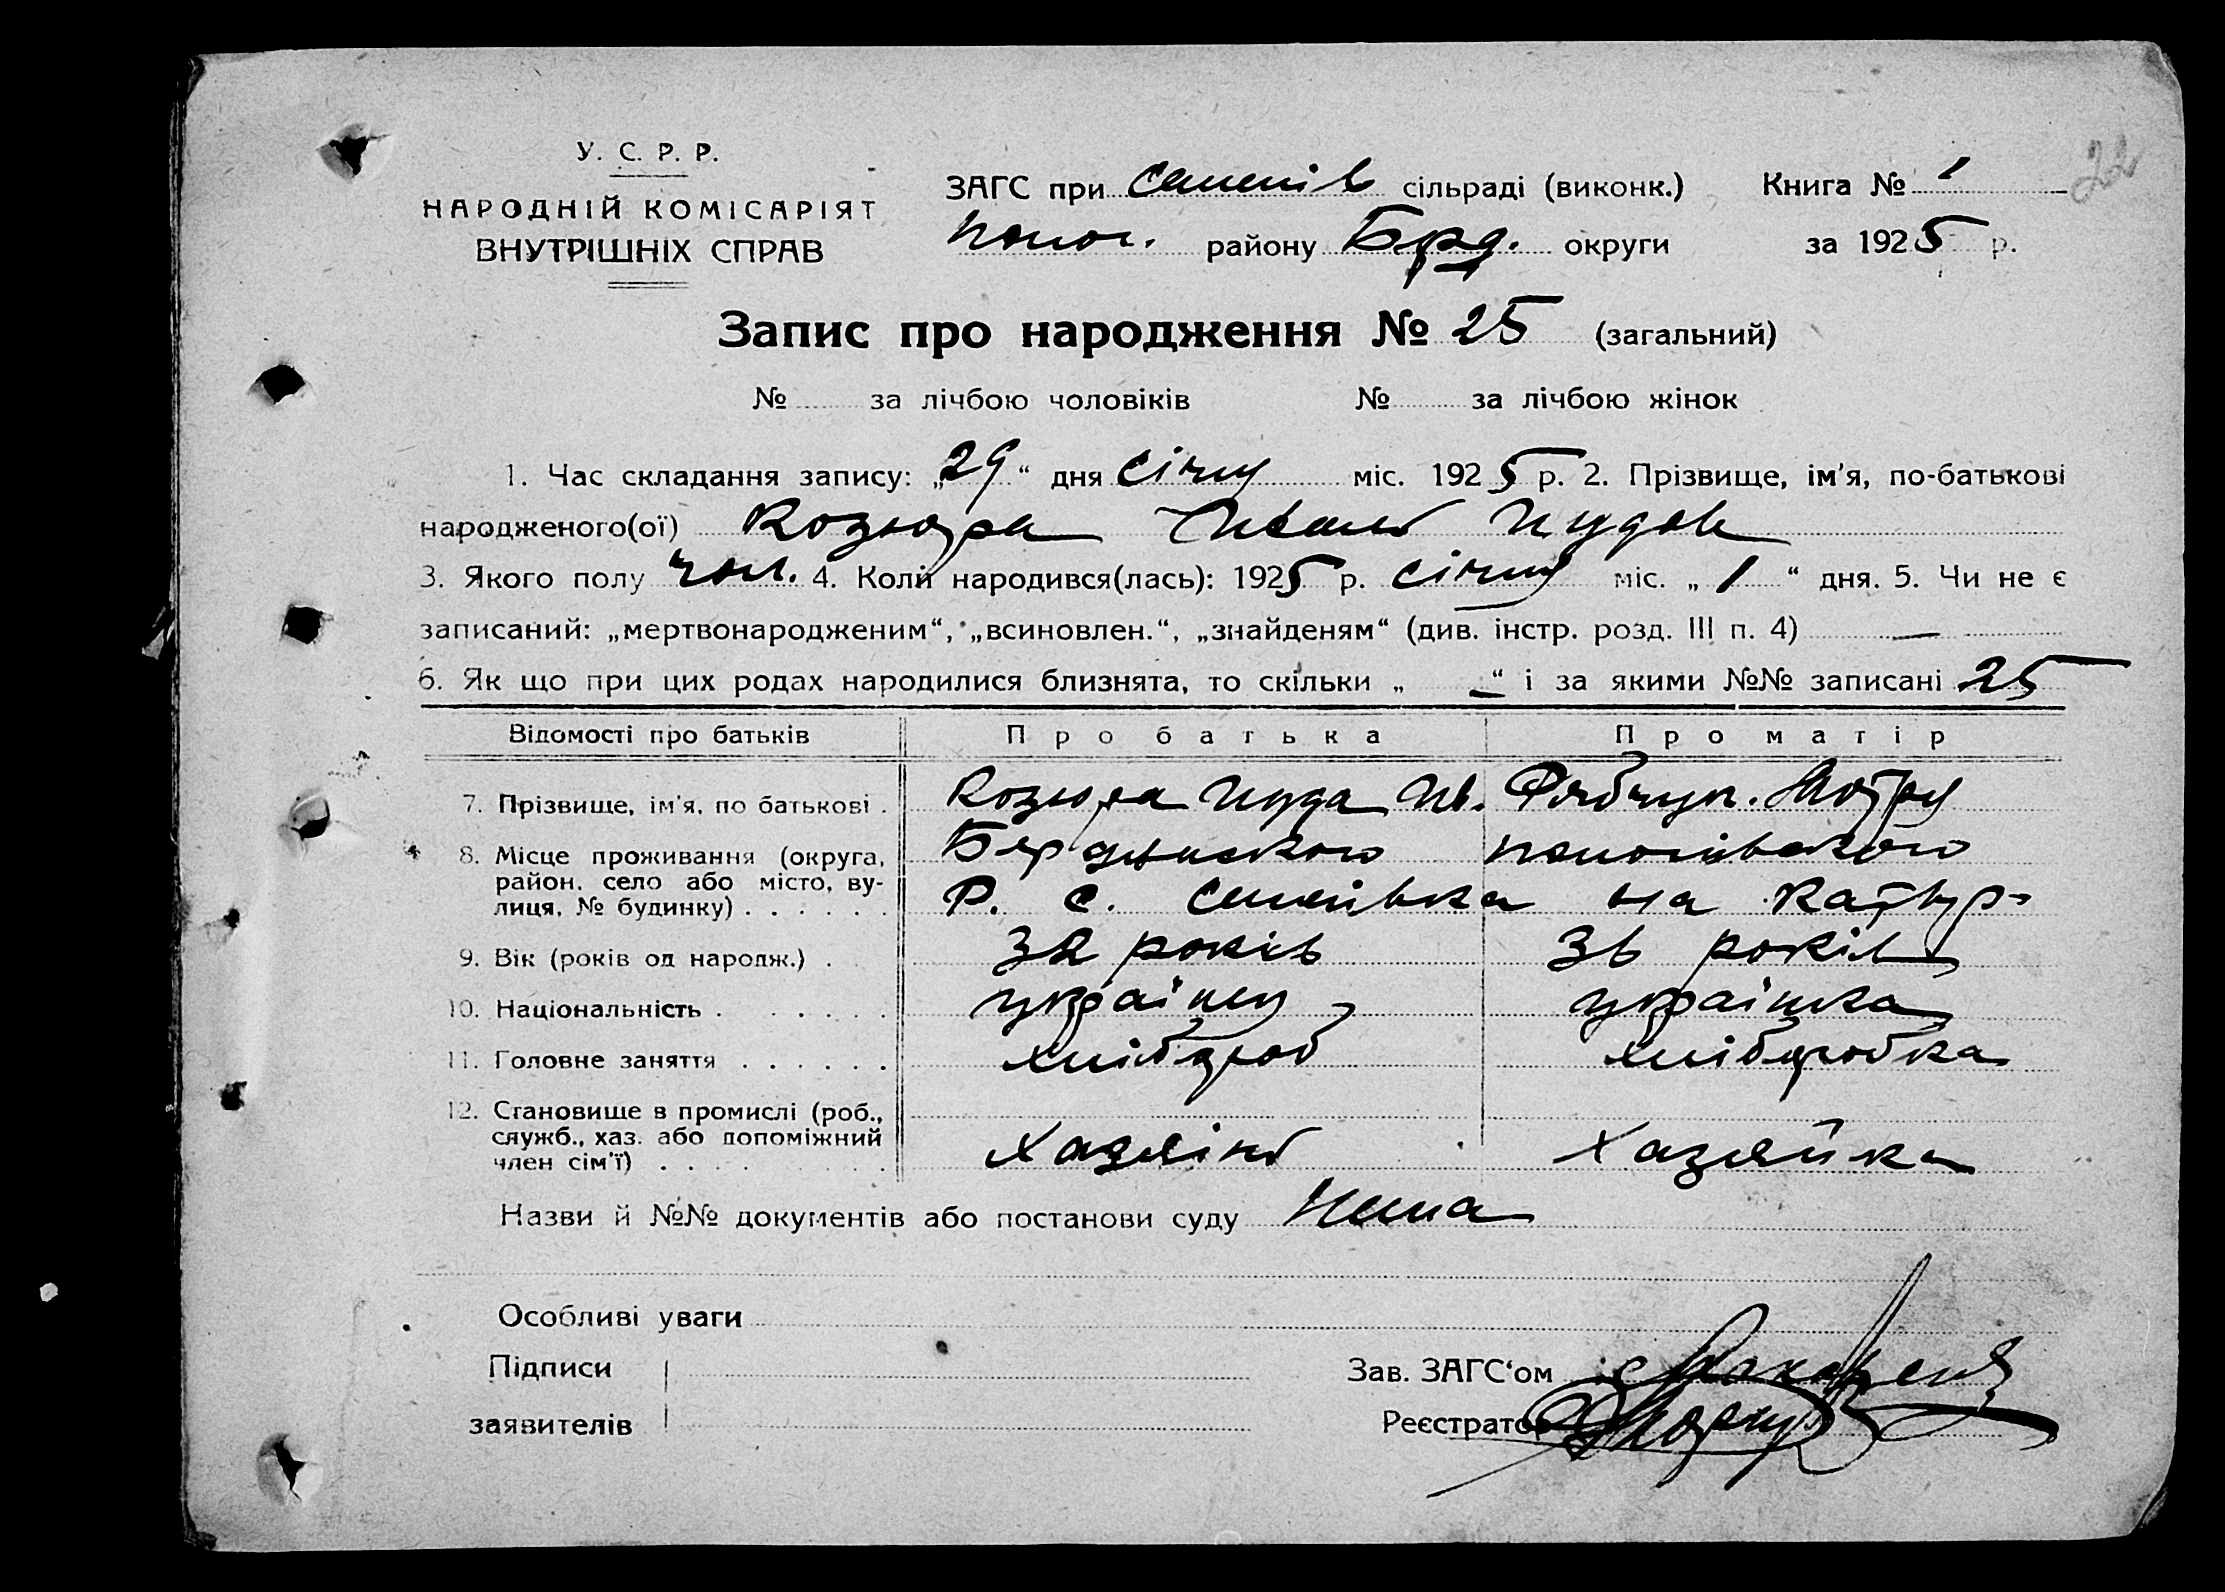 22
У. С. Р. Р.
НАРОДНІЙ КОМІСАРІЯТ
ВНУТРІШНІХ СПРАВ
ЗАГС при семенів сільраді (виконк.) Книга № 1
полог. району Брд. округи за 1925 р.
Запис про народження № 25 (загальний)
№ за лічбою чоловіків № за лічбою жінок
1. Час складання запису: „29“ дня січня міс. 1925 р. 2. Прізвище, ім'я, по-батькові
народженого(ої) Козюра
3. Якого полу чол. 4. Коли народився(лась): 1925 р. січня міс. „1“ дня. 5. Чи не є
записаний: „мертвонародженим“, „всиновлен.“, „знайденям“ (див. інстр. розд. III п. 4) —
6. Як що при цих родах народилися близнята, то скільки „ —“ і за якими №№ записані 25
Відомості про батьків Про батька Про матір
7. Прізвище, ім'я, по батькові . Козюра Ів. Мотря
8. Місце проживання (округа, Бердянского пологівского
район, село або місто, ву-
лиця, № будинку) . . . . . . Р. С. Семенівка на
9. Вік (років од народж.) . 32 років 36 років
10. Національність . . . . . . українец українка
11. Головне заняття . . . . . . хлібороб хліборобка
12. Становище в промислі (роб.,
служб., хаз. або допоміжний
член сім'ї) . . . . . . . . хазяінъ хазяйка
Назви й №№ документів або постанови суду Нема
Особливі уваги
Підписи
заявителів
Зав. ЗАГС‘ом
Реєстратор